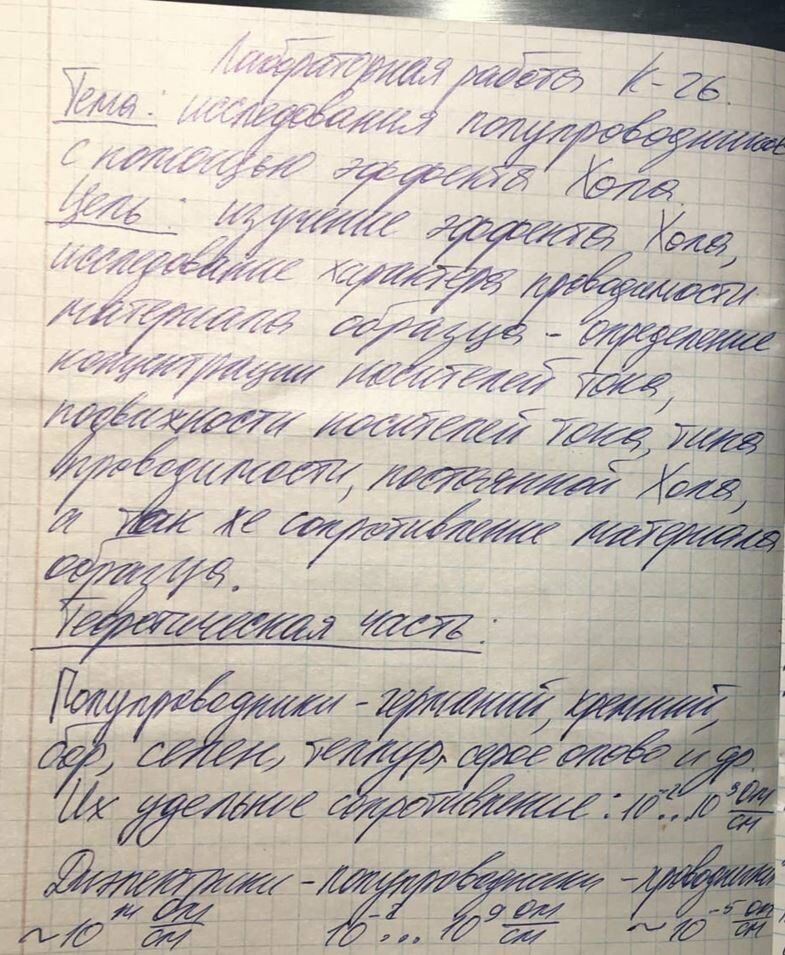 Лабораторная работа К-26.
Тема: исследования полупроводников
с помощью эффекта Хола.
Цель: изучение эффекта Хола,
исследование характера проводимости
материала образца - определение
концентрации носителей тока,
подвижности носителей тока, типа
проводимости, постоянной Хола,
а так же сопротивление материала
образца.
Теоретическая часть:
Полупроводники - германий, кремний,
бор, селен, теллур, серое олово и др.
Их удельное сопротивление: 10⁻²...10⁹ Ом/см
Диэлектрики - полупроводники - проводники
~10¹⁴ Ом/см 10⁻²... 10⁹ Ом/см ~10⁻⁵ Ом/см